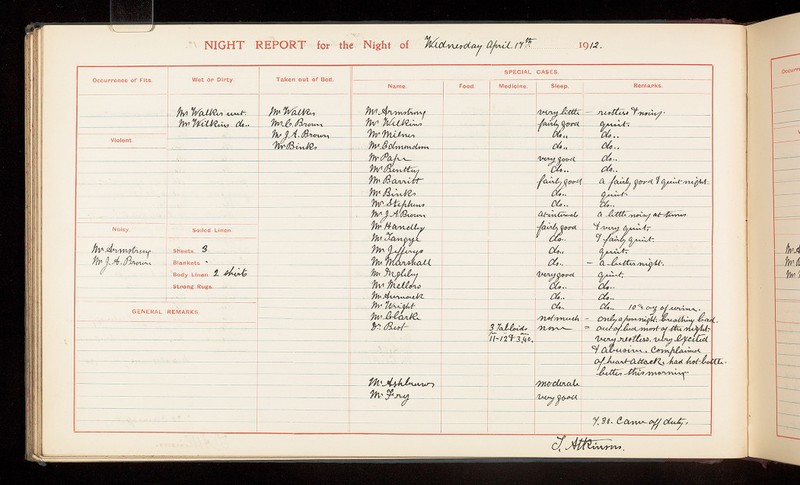 NIGHT REPORT for the Night of Wednesday April 17th 1912.
SPECIAL CASES.
Occurrence of Fits. Wet or Dirty Taken out of Bed. Name. Food. Medicine. Sleep. Remarks.
Mr Walker wet. Mr Walker Mr Armstrong very little - restless & noisy.
Mr Wilkins do.. Mr C. Brown Mr Wilkins fairly good quiet.
Mr J. A. Brown Mr Milner do.. do..
Violent. Mr Binks Mr Edmondson do.. do..
Mr Pape very good do..
Mr Bentley do.. do..
Mr Barritt fairly good a fairly good & quiet night.
Mr Binks do.. quiet.
Mr Stephens do.. do..
Mr J. A. Brown at intervals a little noisy at times
Noisy. Soiled Linen. Mr Handley fairly good & very quiet.
Mr Tangye do.. & fairly quiet.
Mr Armstrong Sheets. 3 Mr Jefferys do.. quiet.
Mr J. A. Brown Blankets Mr Marshall do.. - a better night.
Body Linen 2 shirts Mr Ingleby very good quiet.
Strong Rugs Mr Mellors do.. do..
do.. do..
GENERAL REMARKS. Mr Wright do.. do.. 10 oz of urine.
Mr Clarke not much - only a poor night. breathing bad.
Dr Best 3 Tabloids none = out of bed most of the night.
11-12 & 3.40. very restless. very excited
& abusive. Complained
of heart attack, had hot bottle.
better this morning
Mr moderate
Mr Fry very good
7.30. Came off duty.
Atkinsons.
Occurr